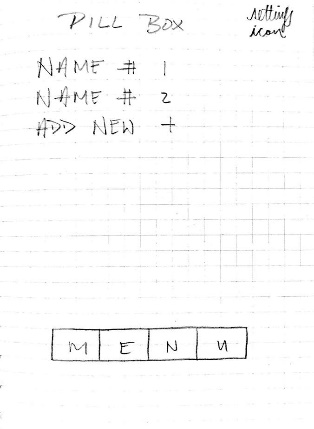 PILL BOX
settings
icon
NAME # 1
NAME # 2
ADD NEW +
M E N U